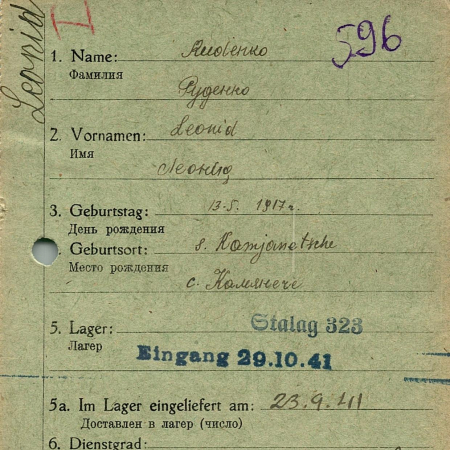 Leonid
596
1. Name: Rudenko
Фамилия
Руденко
2. Vornamen: Leonid
Имя
Леонид
3. Geburtstag: 13.5. 1917г.
День рождения
Geburtsort: s. Kamjanetsche
Место рождения
с. Камянече
5. Lager: Stalag 323
Лагер
Eingang 29.10.41
5a. Im Lager eingeliefert am: 23.9.41
Доставлен в лагер (число)
6. Dienstgrad: